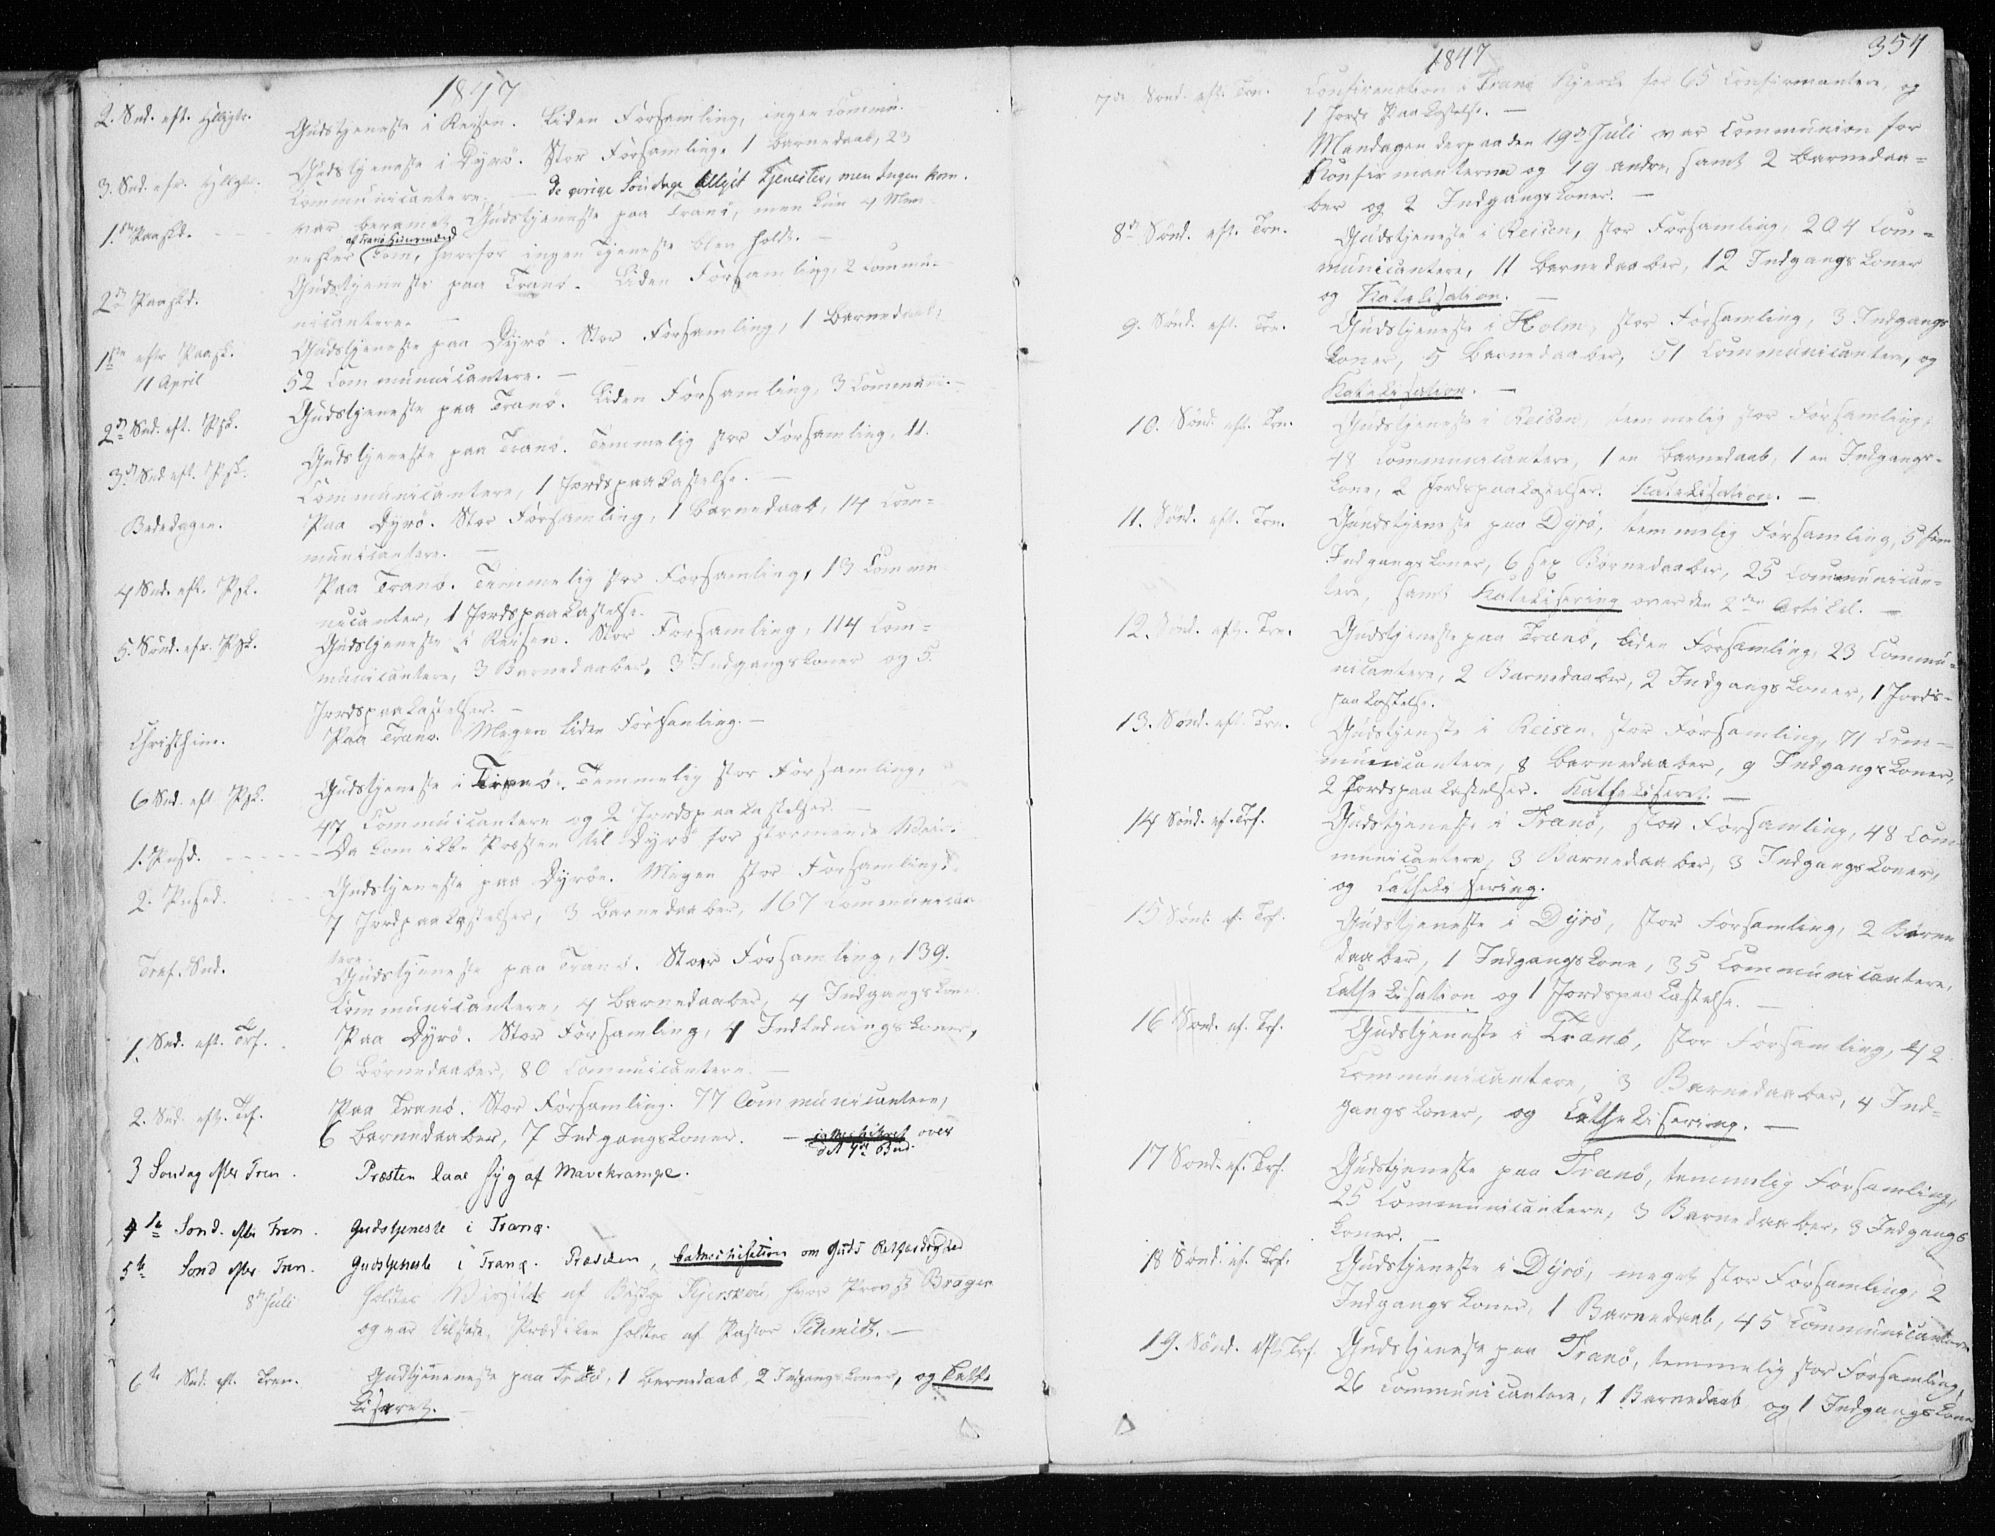 1847
2. Snd. eft. Hllgtr. Gudstjeneste i Reisen. Liden Forsamling, ingen Commu.
Gudstjeneste i Dyrö. Stor Forsamling, 1 Barnedaab, 23
3. Snd. efr. Hllgtr. Communicantere. — De øvrige Søndage tillyst Tjenester, men Ingen kom.
1ste Paaskd. var berammet Gudstjeneste paa Tranö, men kun 4 Men-
nesker kom, hvorfor ingen Tjeneste blev holdt. —
2de Paaskd. Gudstjeneste paa Tranö. Liden Forsamling, 2 Commu-
nicantere. —
1ste eftr Paask. Gudstjeneste paa Dyrö. Stor Forsamling, 1 Barnedaab,
11 April 52 Communicantere. —
2den Snd. eft. Psk. Gudstjeneste paa Tranö. Liden Forsamling, 3 Communi.-
3de Snd eft. Psk. Gudstjeneste paa Tranö. Temmelig stor Forsamling, 11.
Communicantere, 1 Jordspaakastelse. —
Bededagen. Paa Dyrö. Stor Forsamling, 1 Barnedaab, 14 Com-
municantere. —
4 Snd. eft. Psk. Paa Tranö. Temmelig stor Forsamling, 13 Commu-
nicanter, 1 Jordspaakastelse.
5. Sönd. efr. Psk. Gudstjeneste i Reisen. Stor Forsamling, 114 Com-
municantere, 3 Barnedaaber, 3 Indgangskoner og 5.
Jordspaakastelser. —
Christhim. Paa Tranö. Megen liden Forsamling. —
6 Snd. eft Psk. Gudstjeneste i Tranö. Temmelig stor Forsamling,
47 Communicantere og 2 Jordspaakastelser. —
1. Pnsd. Da kom ikke Præsten til Dyrö for stormende Veir.
2. Pnsd. Gudstjeneste paa Dyröe. Megen stor Forsamling.
7 Jordpaakastelser, 3 Barnedaaber, 167 Communican-
tere.
Tref. Snd. Gudstjeneste paa Tranö. Stor Forsamling, 139.
Communicantere, 4 Barnedaaber, 4 Indgangskoner
1. Snd. eft. Trf. Paa Dyrö. Stor Forsamling, 4 Indledningskoner,
6 Börnedaaber, 80 Communicantere. —
2. Snd. eft. Trf. Paa Tranö. Stor Forsamling. 77 Communicantere,
6 Barnedaaber, 7 Indgangskoner. — over
det 4de Bud.
3 Søndag efter Tren. Præsten laae syg af Mavekrampe.
4de Sønd. efter Tren. Gudstjeneste i Tranø.
5te Sønd efter Tren. Gudstjeneste i Tranø. Prædiken, Catechisation om Guds Retfærdighed
8de Juli holdtes Visitats af Biskop Kjerschow, hvor Provst Brager
ogvar tilstede. Prædiken holdtes af Pastor Schmidt. —
6te Snd. eft. Tren. Gudstjeneneste paa Tranö, 1 Barnedaab, 2 Indgangskoner, og Kathe
kiseret. —
354
1847
7de Sönd. eft. Trn. Confirmation i Tranø Kjerke for 65 Confirmantere, og
1 Jords Paakastelse. —
Mandagen derpaa den 19de Juli var Communion for
Konfirmanterne og 19 andre, samt 2 Barnedaa-
ber og 2 Indgangskoner. —
8de Sönd. eft. Trn. Gudstjeneste i Reisen, stor Forsamling, 204 Com-
municantere, 11 Barnedaaber, 12 Indgangskoner
og Katekisation. —
9. Sönd. eft. Trn. Gudstjeneste i Holm, stor Forsamling, 3 Indgangs
koner, 5 Barnedaaber, 51 Communicantere, og
Katekisation. —
10. Sönd. eft. Trn. Gudstjeneste i Reisen, temmelig stor Forsamling,
48 Communicantere, 1 en Barnedaab, 1 en Indgangs-
kone, 2 Jordspaakastelser. Katekisation. —
11. Sönd. eft. Trn. Gudstjeneste paa Dyrö, temmelig Forsamling, 5 fem
Indgangskoner, 6 sex Börnedaaber, 25 Communican-
tere, samt Katekisering over den 2den Artikel. —
12. Sönd. eft. Trn. Gudstjeneste paa Tranö, liden Forsamling, 23 Commu-
nicantere, 2 Barnedaaber, 2 Indgangskoner, 1 Jords-
paakastelse.
13. Sönd. eft. Trn. Gudstjeneste i Reisen, stor Forsamling, 71 Com-
municantere, 8 Barnedaaber, 9 Indgangskoner,
2 Jordspaakastelser. Kathekiseret. —
14 Sönd. ef. Trf. Gudstjeneste i Tranö, stor Forsamling, 48 Com-
municantere, 3 Barnedaaber, 3 Indgangskoner,
og Cathekisering.
15 Sönd. ef. Trf. Gudstjeneste i Dyrö, stor Forsamling, 2 Börne
daaber, 1 Indgangskone, 35 Communicantere,
Cathekisation og 1 Jordspaakastelse. —
16 Sönd. ef. Trf. Gudstjeneste i Tranö, stor Forsamling, 42
Communicantere, 3 Barnedaaber, 4 Ind-
gangskoner, og Cathekisering. —
17 Sönd. ef. Trf. Gudstjeneste paa Tranö, temmelig Forsamling,
25 Communicantere, 3 Barnedaaber, 3 Indgangs
koner. —
18 Sönd. ef. Trf. Gudstjeneste i Dyrö, meget stor Forsamling, 2
Indgangskoner, 1 Barnedaab, 45 Communicantere
19. Sönd. eft. Trf. Gudstjeneste paa Tranö, temmelig stor Forsamling,
26 Communicantere, 1 Barnedaab og 1 Indgangskone